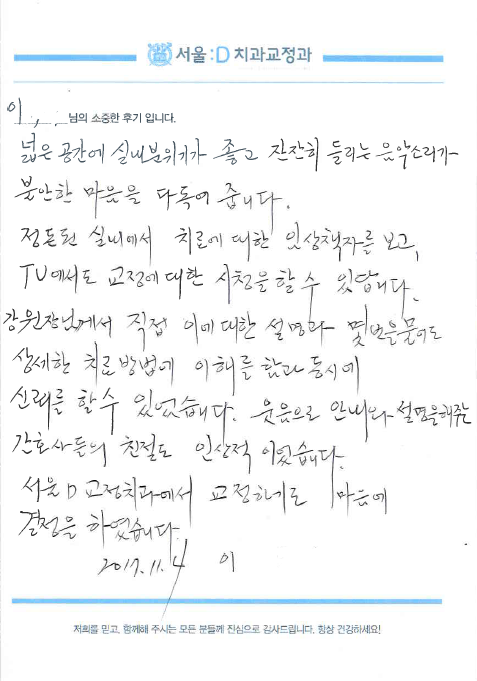 서울:D 치과교정과
이 . . 님의 소중한 후기 입니다.
넓은 공간에 실내분위기가 좋고 잔잔히 들리는 음악소리가
불안한 마음을 다독여 줍니다.
정돈된 실내에서 치료에 대한 인상책자를 보고,
TV에서도 교정에 대한 시청을 할 수 있답니다.
강원장님께서 직접 이에 대한 설명과 몇번을 물어도
상세한 치료 방법에 이해를 함과 동시에
신뢰를 할 수 있었습니다. 웃음으로 안내와 설명을해주는
간호사들의 친절도 인상적 이었습니다.
서울D교정치과에서 교정하기로 마음에
결정을 하였습니다.
2017.11.4 이
저희를 믿고, 함께해 주시는 모든 분들께 진심으로 감사드립니다. 항상 건강하세요!